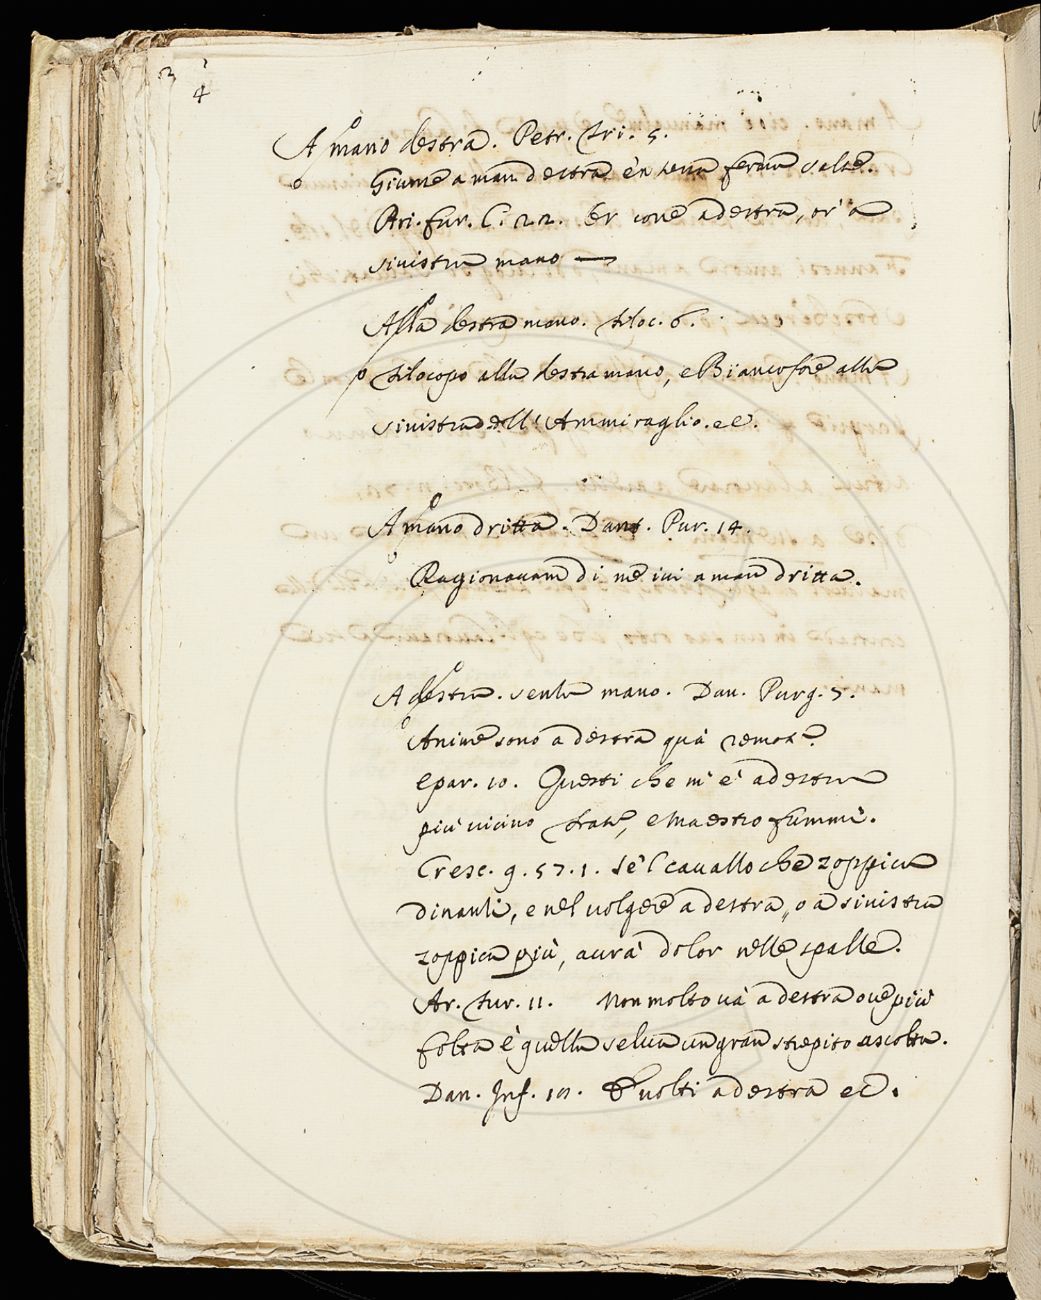 3
4
A mano destra. Petr. tri. 5.
Giunse a man destra, e'n terra ferma salse.
Ari. fur. C. 22. Er corre a destra, or' a
sinistra mano —
Alla destra mano. filoc. 6.
filocopo alla destra mano, e Biancofore alla
sinistra dell' Ammiraglio. ec.
A mano dritta. Dant. Pur. 14.
Ragionavam di me ivi a man dritta.
A destra. senza mano. Dan. Purg. 7.
Anime sono a destra quà remote.
e par. 10. Questi che m' e' a destra
piu' vicino frate, e Maestro fummi.
Cresc. 9. 57. 1. Se 'l cavallo che zoppica
dinanti, e nel volgere a destra, o a sinistra
zoppica più, avrà dolor nelle spalle.
Ar. fur. 11. Non molto và a destra ove più
folta è quella selva un gran strepito ascolta.
Dan. Inf. volti a destra ec.